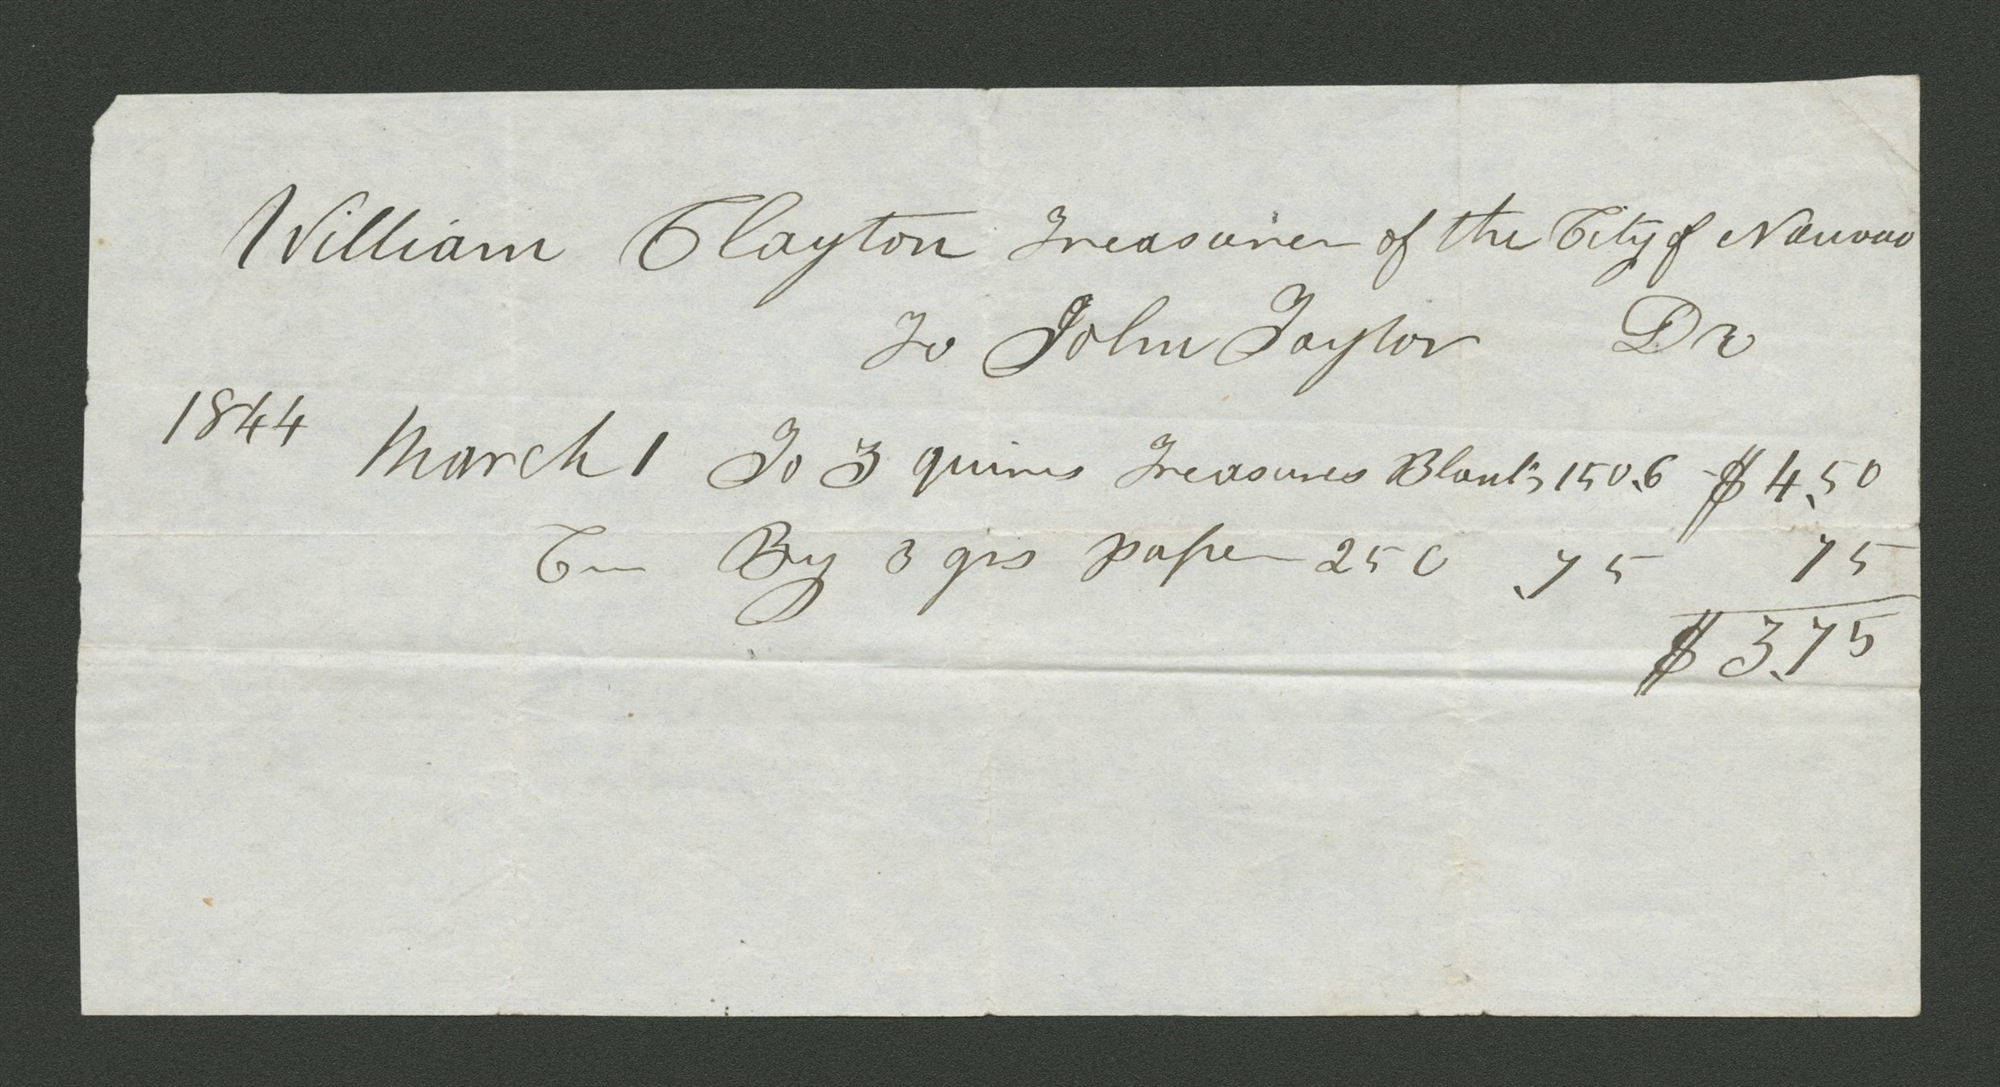 William Clayton Treasurer of the City of Nauvoo
To John Taylor Dr
1844 March 1 To 3 quires Treasures Blanks 150 $4.50
Cr By 3 qrs paper 25 .75 75
$3.75